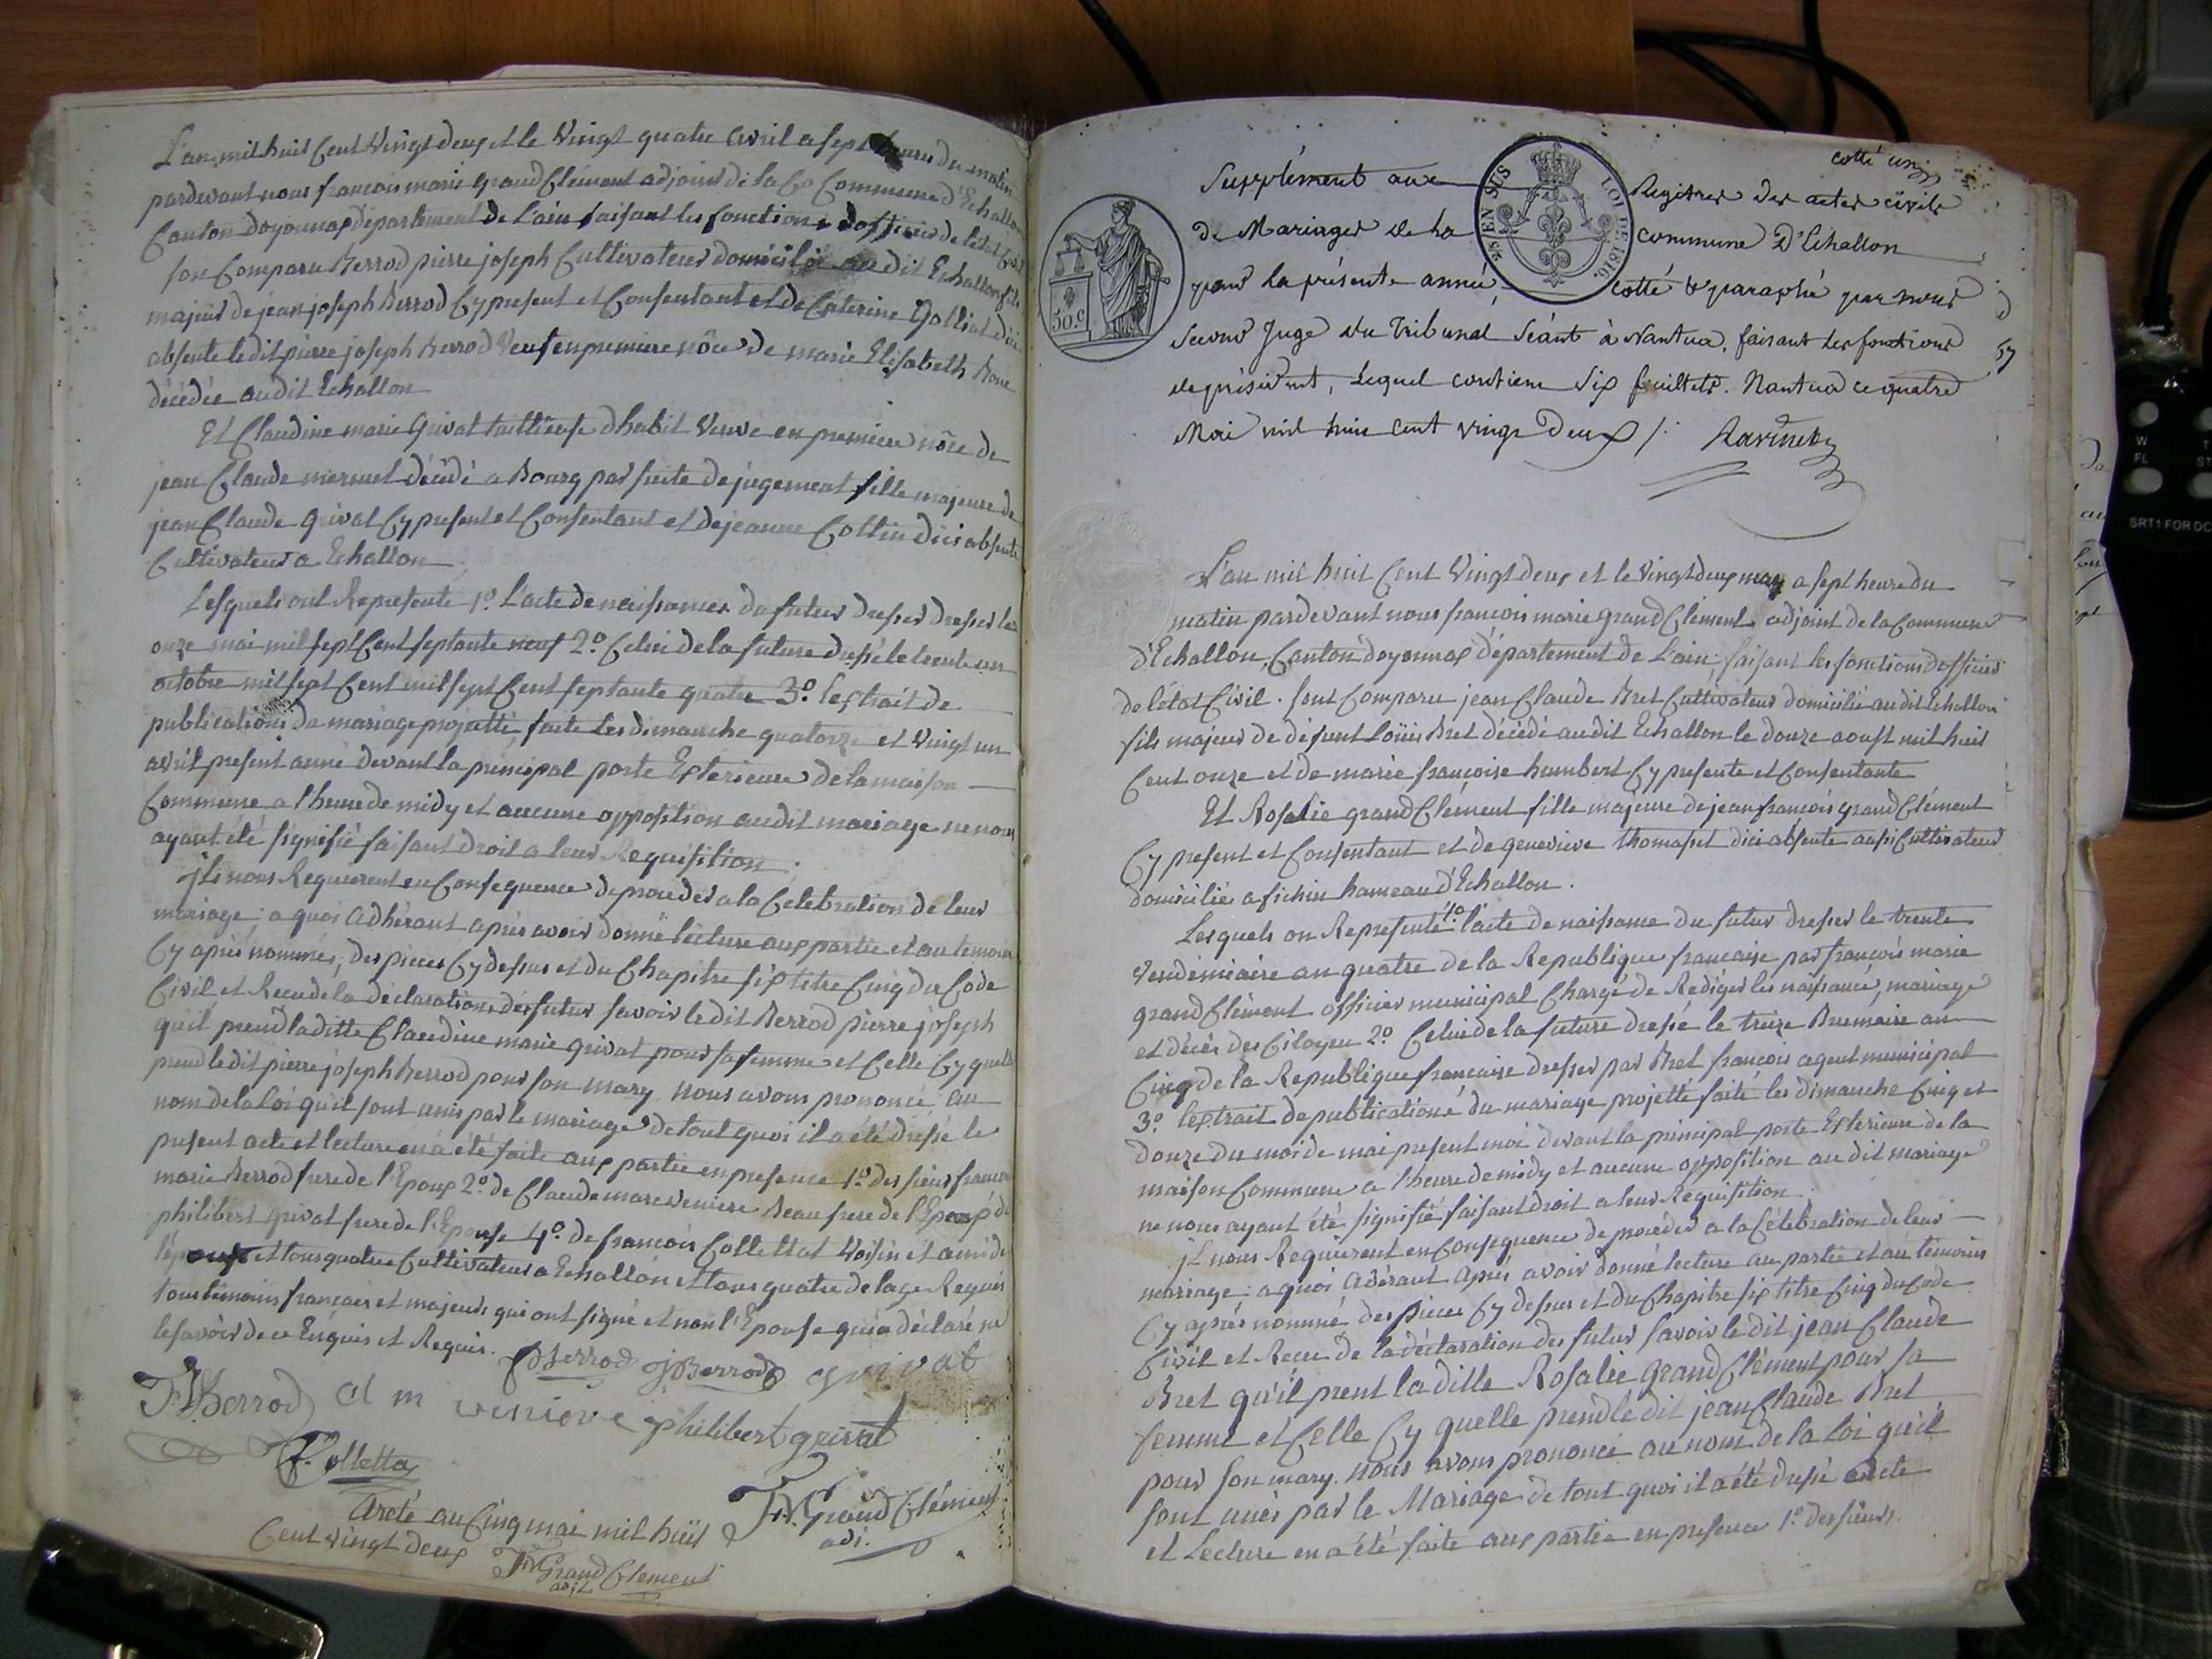 L'an mil huit Cent Vingt deux et le Vingt quatre avril a sept heures du matin
pardevant nous francois marie grand Clement adjoint de la Commune d'Echallon
Canton doyonnax département de L'ain faisant les fonctions d'officier de l'etat Civil
son Comparu Berrod pierre joseph Cultivateur domicilié au dit Echallon fils
majeur de jean joseph Berrod Cy present et Consentant et de Caterine Golliat dici
absente le dit pierre joseph Berrod Veuf en premiere nôce de marie Elisabeth
décédée au dit Echallon
Et Claudine marie Grivat taillieuse dhabit Veuve en premiere nôce de
jean Claude mermet décédé a Bourg par suite de jugement fille majeure de
jean Claude Grivat Cy present et Consentant et de jeanne Collin dici absente
Cultivateur a Echallon
Lesquels ont Representé 1º L'acte de naissances du futur dresser dresser le
onze mai mil sept Cent septante neuf 2º Celui de la future dressé le trente un
octobre mil sept Cent mil sept Cent septante quatre 3º lextrait de
publications du mariage projetté faite les dimanche quatorze et Vingt un
avril present anné devant la principal porte Exterieure de la maison
Commune a l'heure de midy et aucune opposition au dit mariage ne nous
ayant été signifié faisant droit a leur Requisition
ils nous Requierent en Consequence de proceder a la Celebration de leur
mariage ; a quoi adhérant après avoir donné lecture aux partie et au temoin
Cy après nommés, des pieces Cy dessus et du Chapitre six titre Cinq du Code
Civil et Recu de la déclarations des futur savoir le dit Berrod pierre joseph
qu'il prend la ditte Claudine marie Grivat pour sa femme et Celle Cy quelle
prend le dit pierre joseph Berrod pour son mary nous avons prononcé au
nom de la Loi qu'il sont unis par le mariage de tout quoi il a été dressé le
present acte et lecture en a été faite aux partie en presence 1º des sieurs francois
marie Berrod frere de l'Epoux 2º de Claude marc Veniere Beau frere de l'Epoux de
philibert Grivat frere de l'Epouse 4º de francois Collettat Voisin et ami de
lépouse et tous quatre Cultivateurs a Echallon et tous quatre de lage Requis
tous témoins francais et majeurs qui ont signé et non l'Epouse qui a déclaré ne
le savoir de ce Enquis et Requis. Berrod jjBerrod grivat
FMBerrod Cl m veniere philibert grivat
F. Colletta
FM. Grand Clément
adj.
Areté au Cinq mai mil huit
Cent vingt deux
FM Grand Clement
adj.
cotté un
Supplément aux Registres des actes civils
de Mariages de la commune D'Echallon
pour la présente année, cotté & paraphé par nous
Juge du Tribunal séant à Nantua, faisant les fonctions
de président, lequel contient six feuillets. Nantua ce quatre
Mai mil huit cent vingt deux /: Ravinet
50.c
25 EN SUS
LOI DE 1816.
57
L'an mil huit Cent Vingt deux et le Vingt deux may a sept heure du
matin pardevant nous francois marie grand Clement adjoint de la Commune
d'Echallon, Canton doyonnax département de L'ain faisant les fonctions d'officier
de l'état Civil. sont Comparu jean Claude Bret Cultivateur domicilié au dit Echallon
fils majeur de défunt Loüis Bret décédé au dit Echallon le douze aoust mil huit
Cent onze et de marie francoise humbert Cy presente et Consentante
Et Rosalie grand Clément fille majeure de jean francois grand Clément
Cy present et Consentant et de genevieve thomasset dici absente aussi Cultivateur
domiciliés a fichin hameau d'Echallon.
Lesquels on Representé 1º l'acte de naissance du futur dresser le trente
Vendémiaire an quatre de la Republique francaise par francois marie
grand Clément officier municipal Chargé de Rediger les naissance, mariage
et décès des Citoyen 2º Celui de la future dressé le treize Brumaire an
Cinq de la Republique francaise dresser par Bret francois agent municipal
3º lextrait de publicationé du mariage projetté faité les dimanche Cinq et
douze du moi de mai present moi devant la principal porte Exterieure de la
maison Commune a l'heure de midy et aucune opposition au dit mariage
ne nous ayant été signifié faisant droit a leur Requisition.
il nous Requierent en Consequence de proceder a la Célébration de leur
mariage : a quoi adérant après avoir donné lecture au partie et au témoins
Cy après nommé des pieces Cy dessus et du Chapitre six titre Cinq du Code
Civil et Recu de la déclaration des futur savoir le dit jean Claude
Bret qu'il prent la ditte Rosalie grand Clément pour sa
femme et Celle Cy quelle prend le dit jean Claude Bret
pour son mary. nous avons prononcé au nom de la loi qu'il
sont unis par le Mariage de tout quoi il a été dressé acte
et Lecture en a été faite aux partie en presence 1º des sieurs.